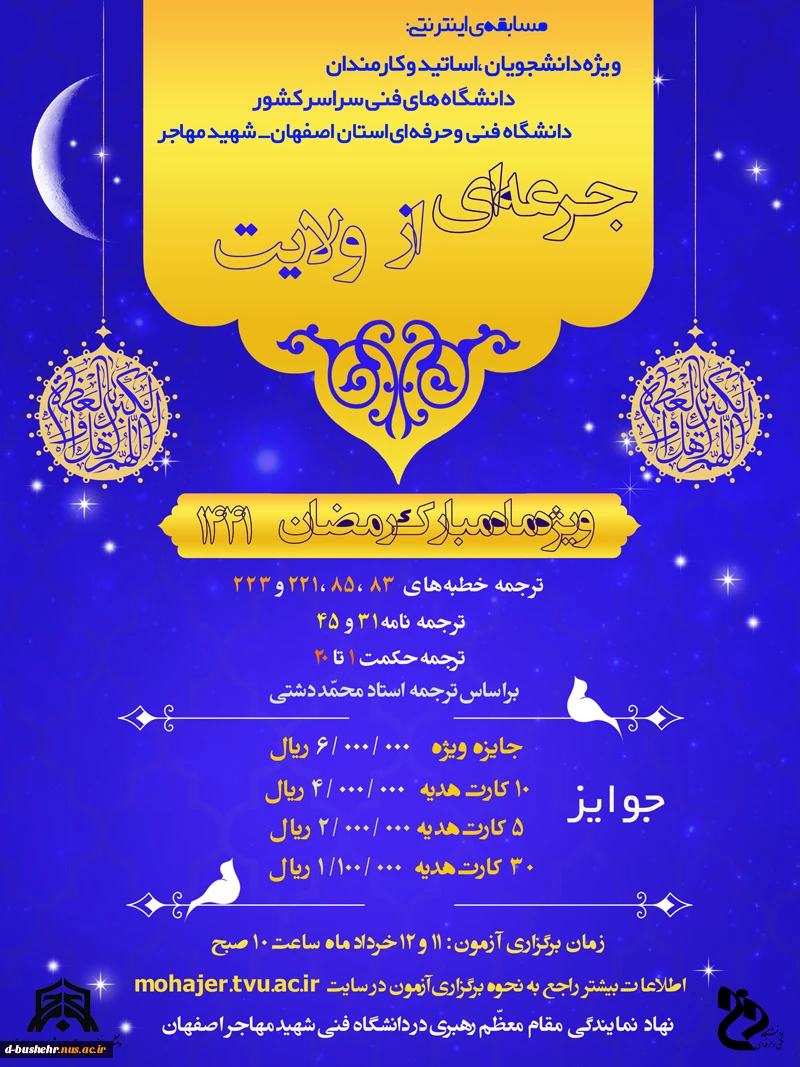 مسابقه‌ی اینترنتی:
ویژه دانشجویان ،اساتید و کارمندان
دانشگاه های فنی سراسر کشور
دانشگاه فنی و حرفه ای استان اصفهان_ شهید مهاجر
جرعه‌ای از ولایت
ویژه ماه مبارک رمضان ۱۴۴۱
ترجمه خطبه های ۸۳ ،۸۵ ،۲۲۱ و ۲۲۳
ترجمه نامه ۳۱ و ۴۵
ترجمه حکمت ۱ تا ۲۰
براساس ترجمه استاد محمّد دشتی
جوایز
جایزه ویژه ۶/۰۰۰/۰۰۰ ریال
۱۰ کارت هدیه ۴/۰۰۰/۰۰۰ ریال
۵ کارت هدیه ۲/۰۰۰/۰۰۰ ریال
۳۰ کارت هدیه ۱/۱۰۰/۰۰۰ ریال
زمان برگزاری آزمون: ۱۱ و ۱۲ خرداد ماه ساعت ۱۰ صبح
اطلاعات بیشتر راجع به نحوه برگزاری آزمون در سایت mohajer.tvu.ac.ir
نهاد نمایندگی مقام معظّم رهبری در دانشگاه فنی شهید مهاجر اصفهان
دانشگاه
فنی و حرفه‌ای
d-bushehr.nus.ac.ir